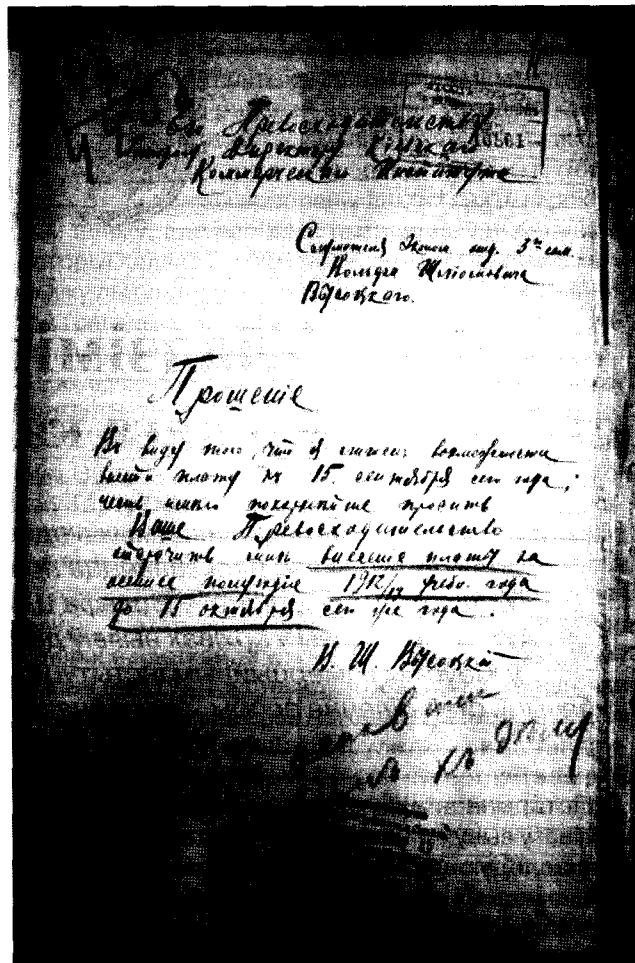 Его Превосходительству
Директору Кіевскаго
Коммерческаго Института
Эконом. отд. 3го сем.
Вольфа Шліомовича
Высоцкаго.
Прошеніе
Въ виду того, что я лишенъ возможности
внести плату къ 15 сентября сего года,
честь имѣю покорнѣйше просить
Ваше Превосходительство
отсрочить мнѣ внесеніе платы за
осеннее полугодіе 1912/13 учебн. года
до 15 октября сего же года.
В. Ш. Высоцкій